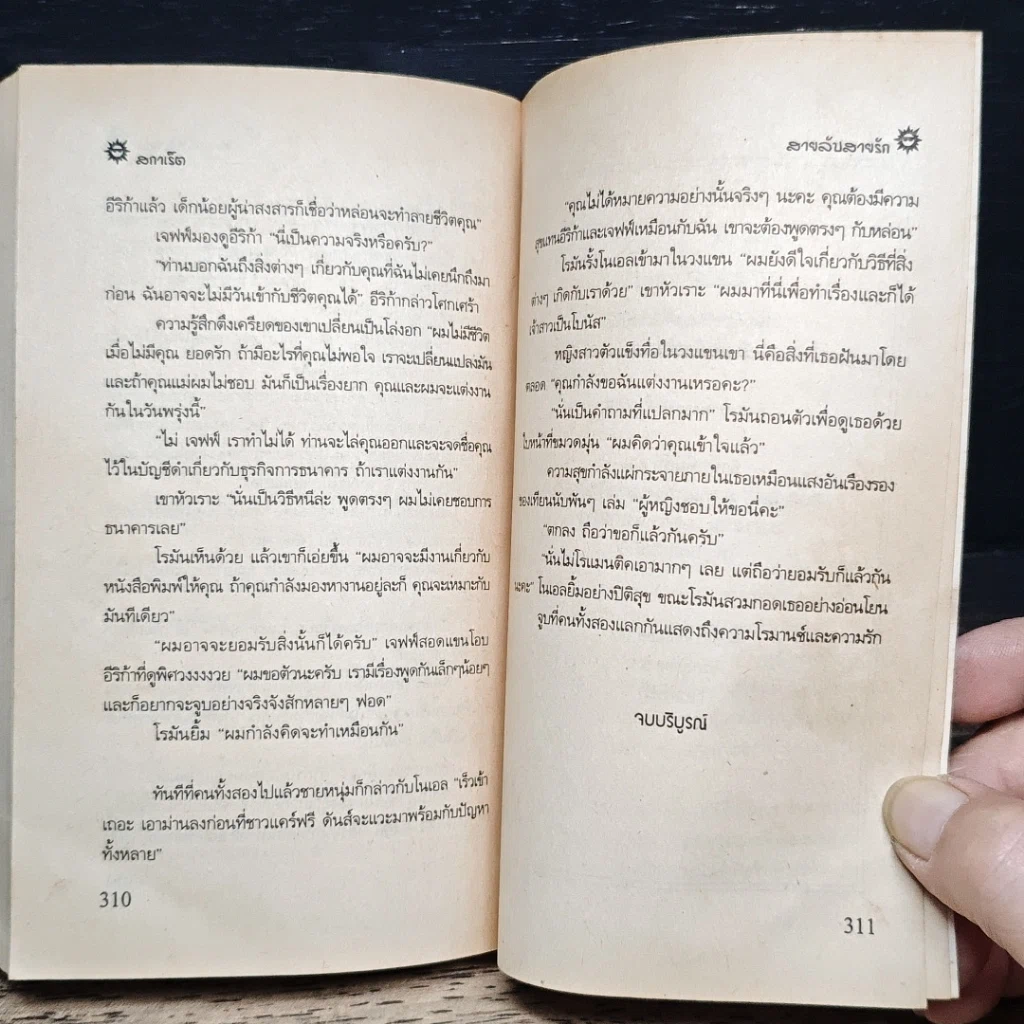 สกาเร็ต
อีริก้าแล้ว เด็กน้อยผู้น่าสงสารก็เชื่อว่าหล่อนจะทำลายชีวิตคุณ”
เจฟฟ์มองดูอีริก้า “นี่เป็นความจริงหรือครับ?”
“ท่านบอกฉันถึงสิ่งต่างๆ เกี่ยวกับคุณที่ฉันไม่เคยนึกถึงมา
ก่อน ฉันอาจจะไม่มีวันเข้ากับชีวิตคุณได้” อีริก้ากล่าวโศกเศร้า
ความรู้สึกตึงเครียดของเขาเปลี่ยนเป็นโล่งอก “ผมไม่มีชีวิต
เมื่อไม่มีคุณ ยอดรัก ถ้ามีอะไรที่คุณไม่พอใจ เราจะเปลี่ยนแปลงมัน
และถ้าคุณแม่ผมไม่ชอบ มันก็เป็นเรื่องยาก คุณและผมจะแต่งงาน
กันในวันพรุ่งนี้”
“ไม่ เจฟฟ์ เราทำไม่ได้ ท่านจะไล่คุณออกและจะจดชื่อคุณ
ไว้ในบัญชีดำเกี่ยวกับธุรกิจการธนาคาร ถ้าเราแต่งงานกัน”
เขาหัวเราะ “นั่นเป็นวิธีหนีล่ะ พูดตรงๆ ผมไม่เคยชอบการ
ธนาคารเลย”
โรมันเห็นด้วย แล้วเขาก็เอ่ยขึ้น “ผมอาจจะมีงานเกี่ยวกับ
หนังสือพิมพ์ให้คุณ ถ้าคุณกำลังมองหางานอยู่ละก็ คุณจะเหมาะกับ
มันทีเดียว”
“ผมอาจจะยอมรับสิ่งนั้นก็ได้ครับ” เจฟฟ์สอดแขนโอบ
อีริก้าที่ดูพิศวงงงงวย “ผมขอตัวนะครับ เรามีเรื่องพูดกันเล็กๆน้อยๆ
และก็อยากจะจูบอย่างจริงจังสักหลายๆ ฟอด”
โรมันยิ้ม “ผมกำลังคิดจะทำเหมือนกัน”
ทันทีที่คนทั้งสองไปแล้วชายหนุ่มก็กล่าวกับโนเอล “เร็วเข้า
เถอะ เอาม่านลงก่อนที่ชาวแคร์ฟรี ดันส์จะแวะมาพร้อมกับปัญหา
ทั้งหลาย”
310
สายลับสายรัก
“คุณไม่ได้หมายความอย่างนั้นจริงๆ นะคะ คุณต้องมีความ
สุขแทนอีริก้าและเจฟฟ์เหมือนกับฉัน เขาจะต้องพูดตรงๆ กับหล่อน”
โรมันรั้งโนเอลเข้ามาในวงแขน “ผมยังดีใจเกี่ยวกับวิธีที่สิ่ง
ต่างๆ เกิดกับเราด้วย” เขาหัวเราะ “ผมมาที่นี่เพื่อทำเรื่องและก็ได้
เจ้าสาวเป็นโบนัส”
หญิงสาวตัวแข็งทื่อในวงแขนเขา นี่คือสิ่งที่เธอฝันมาโดย
ตลอด “คุณกำลังขอฉันแต่งงานเหรอคะ?”
“นั่นเป็นคำถามที่แปลกมาก” โรมันถอนตัวเพื่อดูเธอด้วย
ใบหน้าที่ขมวดมุ่น “ผมคิดว่าคุณเข้าใจแล้ว”
ความสุขกำลังแผ่กระจายภายในเธอเหมือนแสงอันเรืองรอง
ของเทียนนับพันๆ เล่ม “ผู้หญิงชอบให้ขอนี่คะ”
“ตกลง ถือว่าขอก็แล้วกันครับ”
“นั่นไม่โรแมนติคเอามากๆ เลย แต่ถือว่ายอมรับก็แล้วกัน
นะคะ” โนเอลยิ้มอย่างปีติสุข ขณะโรมันสวมกอดเธออย่างอ่อนโยน
จูบที่คนทั้งสองแลกกันแสดงถึงความโรมานซ์และความรัก
จบบริบูรณ์
311